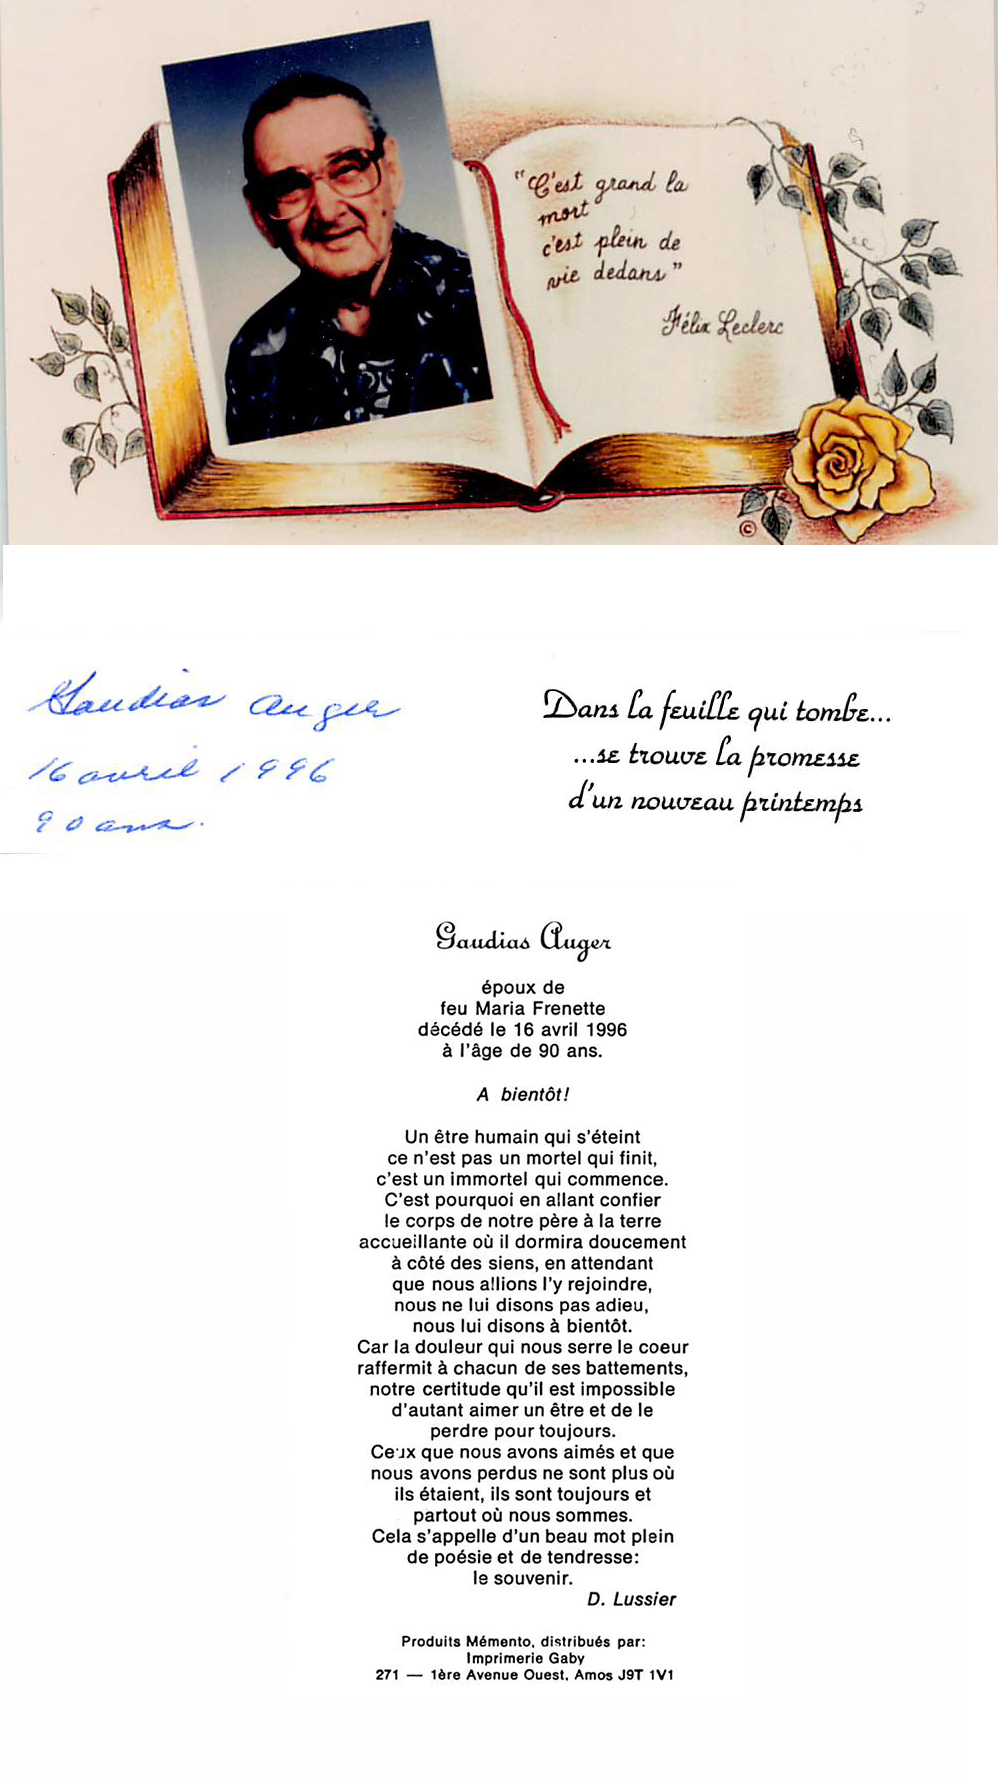 "C'est grand la
mort
c'est plein de
vie dedans"
Félix Leclerc
©
Gaudias Auger
16 avril 1996
90 ans.
Dans la feuille qui tombe...
...se trouve la promesse
d'un nouveau printemps
Gaudias Auger
époux de
feu Maria Frenette
décédé le 16 avril 1996
à l'âge de 90 ans.
A bientôt!
Un être humain qui s'éteint
ce n'est pas un mortel qui finit,
c'est un immortel qui commence.
C'est pourquoi en allant confier
le corps de notre père à la terre
accueillante où il dormira doucement
à côté des siens, en attendant
que nous allions l'y rejoindre,
nous ne lui disons pas adieu,
nous lui disons à bientôt.
Car la douleur qui nous serre le coeur
raffermit à chacun de ses battements,
notre certitude qu'il est impossible
d'autant aimer un être et de le
perdre pour toujours.
Ceux que nous avons aimés et que
nous avons perdus ne sont plus où
ils étaient, ils sont toujours et
partout où nous sommes.
Cela s'appelle d'un beau mot plein
de poésie et de tendresse:
le souvenir.
D. Lussier
Produits Mémento, distribués par:
Imprimerie Gaby
271 — 1ère Avenue Ouest, Amos J9T 1V1